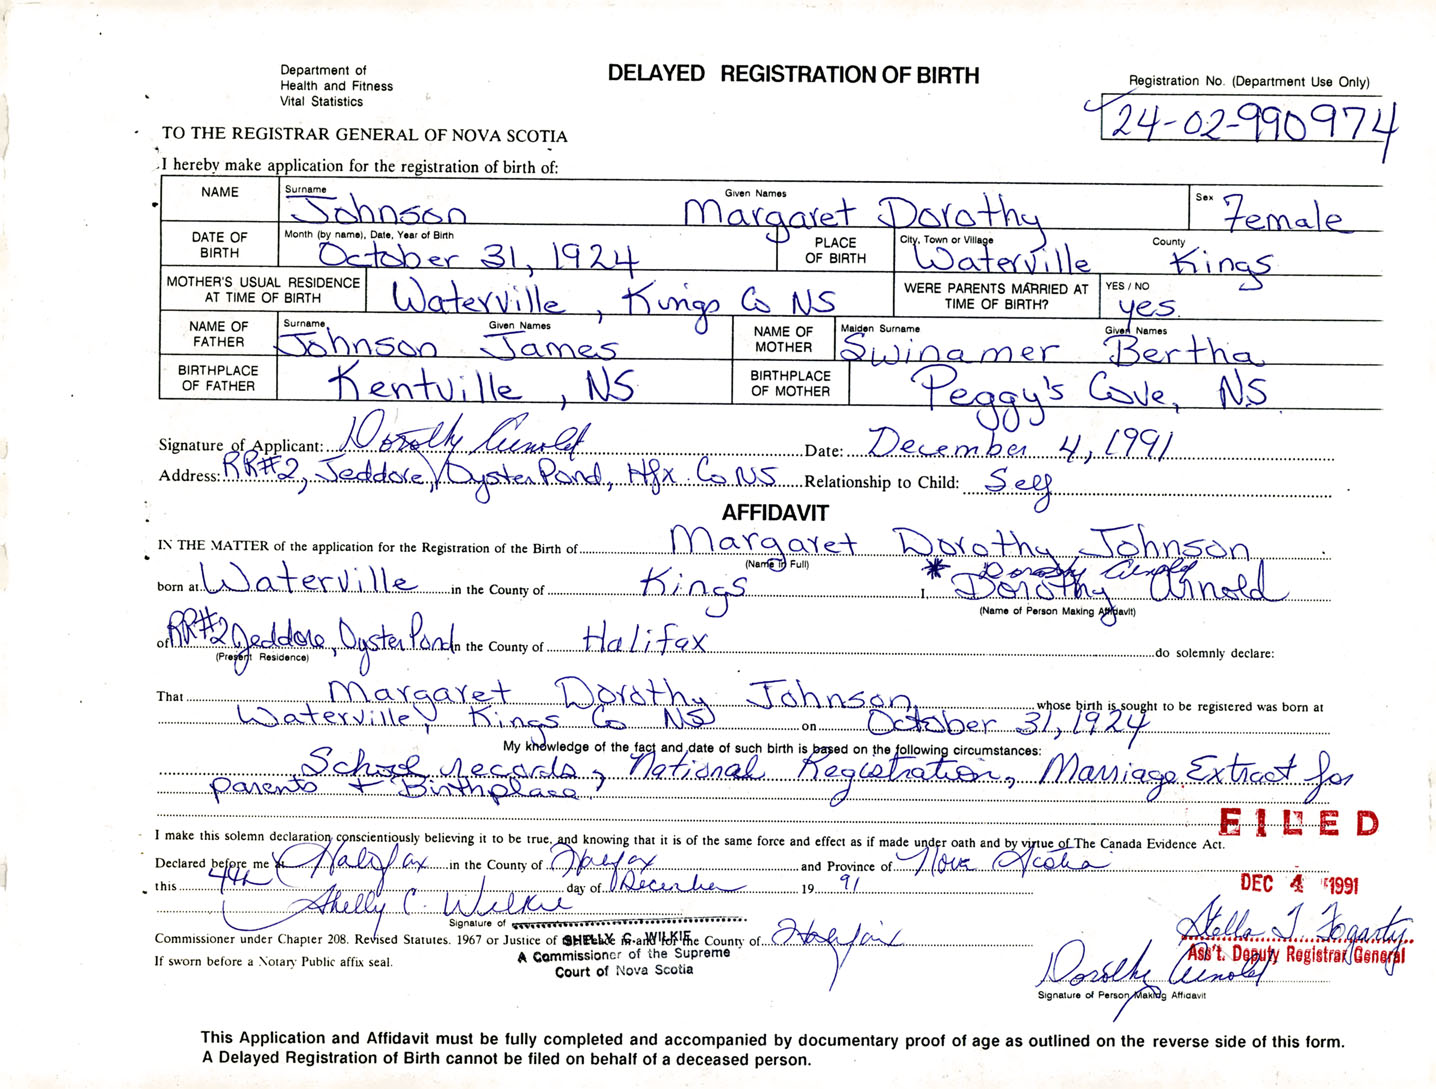 Department of
Health and Fitness
Vital Statistics
DELAYED REGISTRATION OF BIRTH
Registration No. (Department Use Only)
24-02-990974
TO THE REGISTRAR GENERAL OF NOVA SCOTIA
I hereby make application for the registration of birth of:
NAME Surname Johnson Given Names Margaret Dorothy Sex Female
DATE OF BIRTH Month (by name), Date, Year of Birth October 31, 1924 PLACE OF BIRTH City, Town or Village Waterville County Kings
MOTHER'S USUAL RESIDENCE AT TIME OF BIRTH Waterville, Kings Co NS WERE PARENTS MARRIED AT TIME OF BIRTH? YES / NO yes.
NAME OF FATHER Surname Johnson Given Names James NAME OF MOTHER Maiden Surname Swinamer Given Names Bertha
BIRTHPLACE OF FATHER Kentville, NS BIRTHPLACE OF MOTHER Peggy's Cove, NS
Signature of Applicant: Dorothy Arnold Date: December 4, 1991
Address: RR#2, Jeddore, Oyster Pond, Hfx Co NS Relationship to Child: Self
AFFIDAVIT
IN THE MATTER of the application for the Registration of the Birth of Margaret Dorothy Johnson
(Name in Full)
Dorothy Arnold
born at Waterville in the County of Kings I, * Dorothy Arnold
(Name of Person Making Affidavit)
of RR#2 Jeddore, Oyster Pond in the County of Halifax do solemnly declare:
(Present Residence)
That Margaret Dorothy Johnson, whose birth is sought to be registered was born at
Waterville, Kings Co NS on October 31, 1924
My knowledge of the fact and date of such birth is based on the following circumstances:
School records, National Registration, Marriage Extract for
parents + Birthplace,
FILED
I make this solemn declaration conscientiously believing it to be true, and knowing that it is of the same force and effect as if made under oath and by virtue of The Canada Evidence Act.
Declared before me at Halifax in the County of Halifax and Province of Nova Scotia
this 4th day of December 1991
DEC 4 1991
Shelly C. Wilkie
Signature of
Stella T. Fogarty
Commissioner under Chapter 208. Revised Statutes. 1967 or Justice of the Peace in and for the County of Halifax
SHELLY C. WILKIE
A Commissioner of the Supreme
Court of Nova Scotia
If sworn before a Notary Public affix seal.
Ass't. Deputy Registrar General
Dorothy Arnold
Signature of Person Making Affidavit
This Application and Affidavit must be fully completed and accompanied by documentary proof of age as outlined on the reverse side of this form.
A Delayed Registration of Birth cannot be filed on behalf of a deceased person.